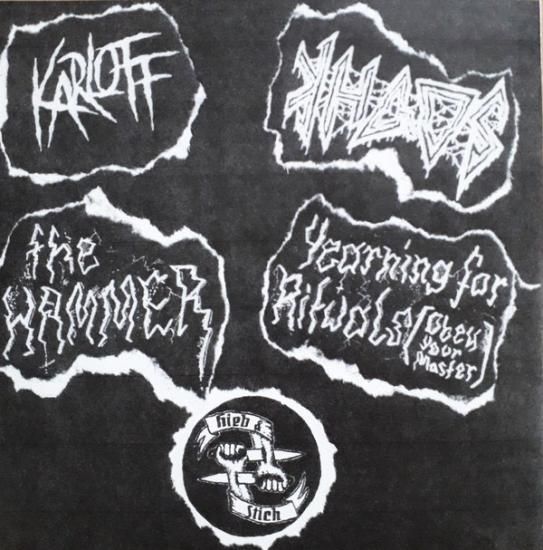 KARLOFF
KHAOS
the
HAMMER
Yearning for
Rituals (Obey
your
Master)
hieb &
Stich